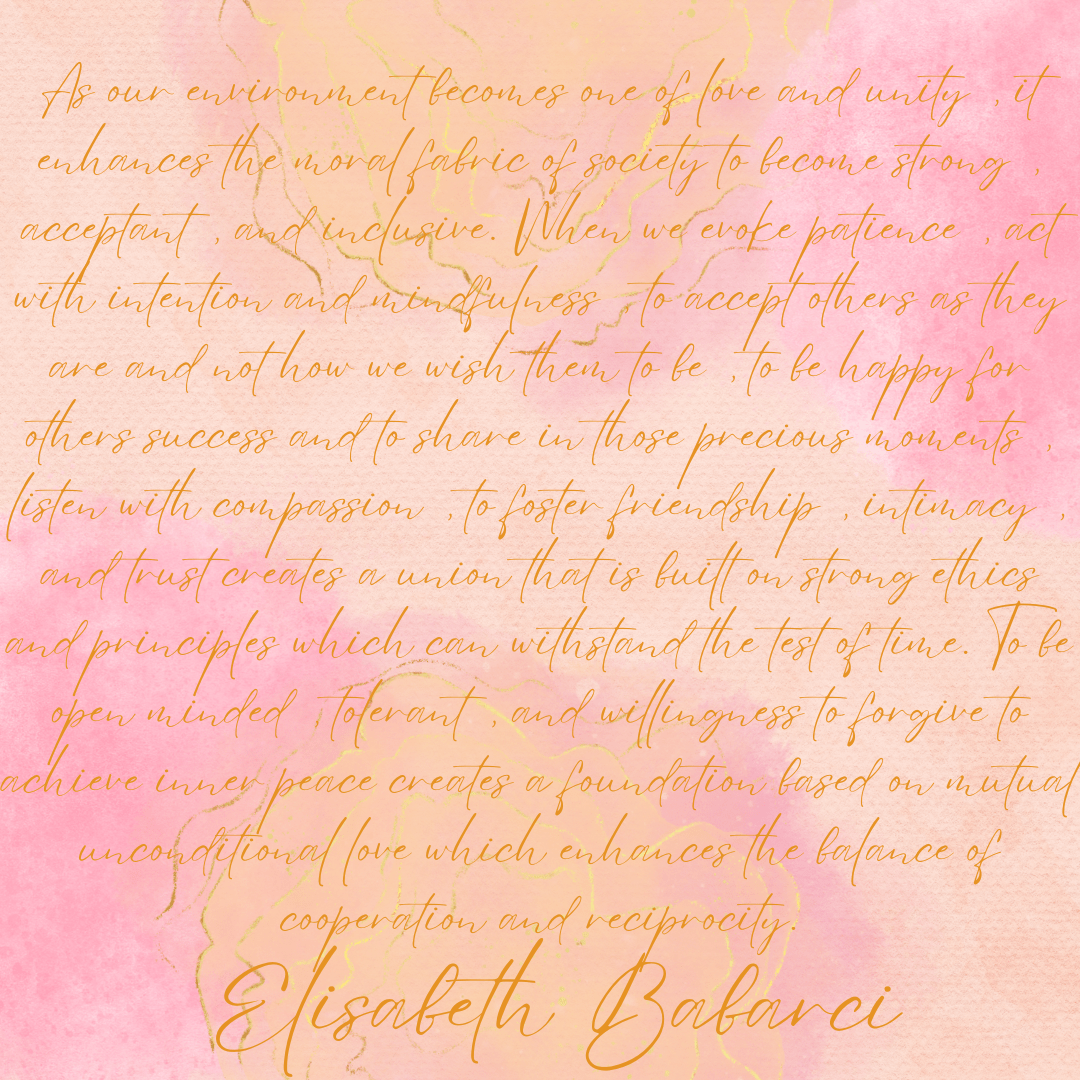 As our environment becomes one of love and unity , it
enhances the moral fabric of society to become strong ,
acceptant , and inclusive. When we evoke patience , act
with intention and mindfulness to accept others as they
are and not how we wish them to be , to be happy for
others success and to share in those precious moments ,
listen with compassion , to foster friendship , intimacy ,
and trust creates a union that is built on strong ethics
and principles which can withstand the test of time. To be
open minded , tolerant , and willingness to forgive to
achieve inner peace creates a foundation based on mutual
unconditional love which enhances the balance of
cooperation and reciprocity.
Elisabeth Babarci